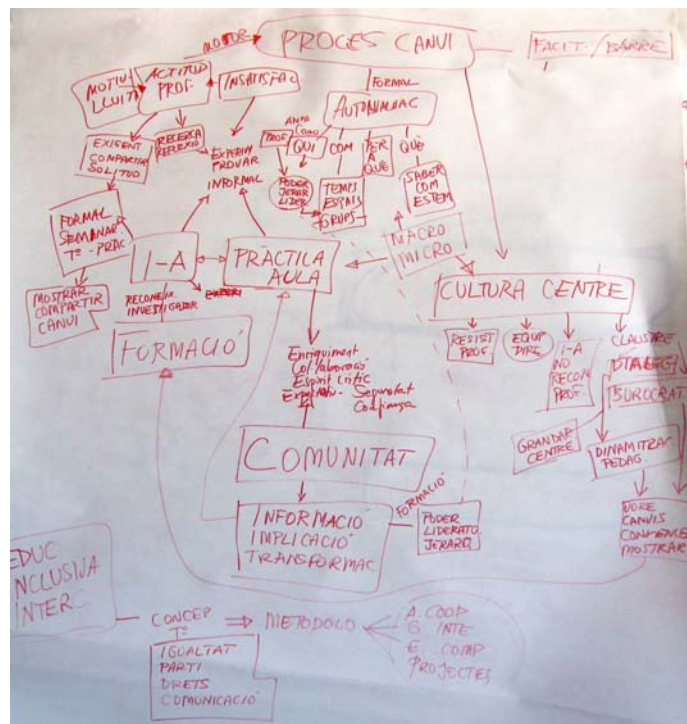 PROCES CANVI
MOTOR
FACIT-/BARRE
MOTIV
LLUITA
ACTITUD
PROF.
INSATISFAC
FORMAL
AUTOAVALUAC
EXIGENT
COMPARTIR
SOLITUD
RECERCA
REFLEXIÓ
EXPERIM
PROVAR
INFORMAL
PROF
QUI
COM
PER
A
QUÈ
QUÈ
PODER
JERAR
LIDER
TEMPS
ESPAIS
GRUPS
SABER
COM
ESTEM
FORMAL
SEMINAR
Tª - PRÀC
I-A
PRÀCTICA
AULA
MACRO
MICRO
MOSTRAR
COMPARTIR
CANVI
RECONEIX.
INVESTIGADOR
FORMACIÓ
CULTURA CENTRE
RESIST
PROF.
EQUIP
DIRE
I-A
NO
RECON
PROF.
CLAUSTRE
BUROCRAT
GRANDÀR
CENTRE
DINAMITZAR
PEDAG.
VORE
CANVIS
MOSTRAR
Enriquiment
Col·laboració
Esperit crític
Seguretat
Confiança
COMUNITAT
INFORMACIÓ
IMPLICACIÓ
TRANSFORMAC
FORMACIÓ
PODER
LIDERATG
JERARQ
EDUC
INCLUSIVA
INTERC.
CONCEP
Tª
METODOLO
A. COOP
G. INTE
E. COMP
PROJECTES
IGUALTAT
PARTI
DRETS
COMUNICACIÓ